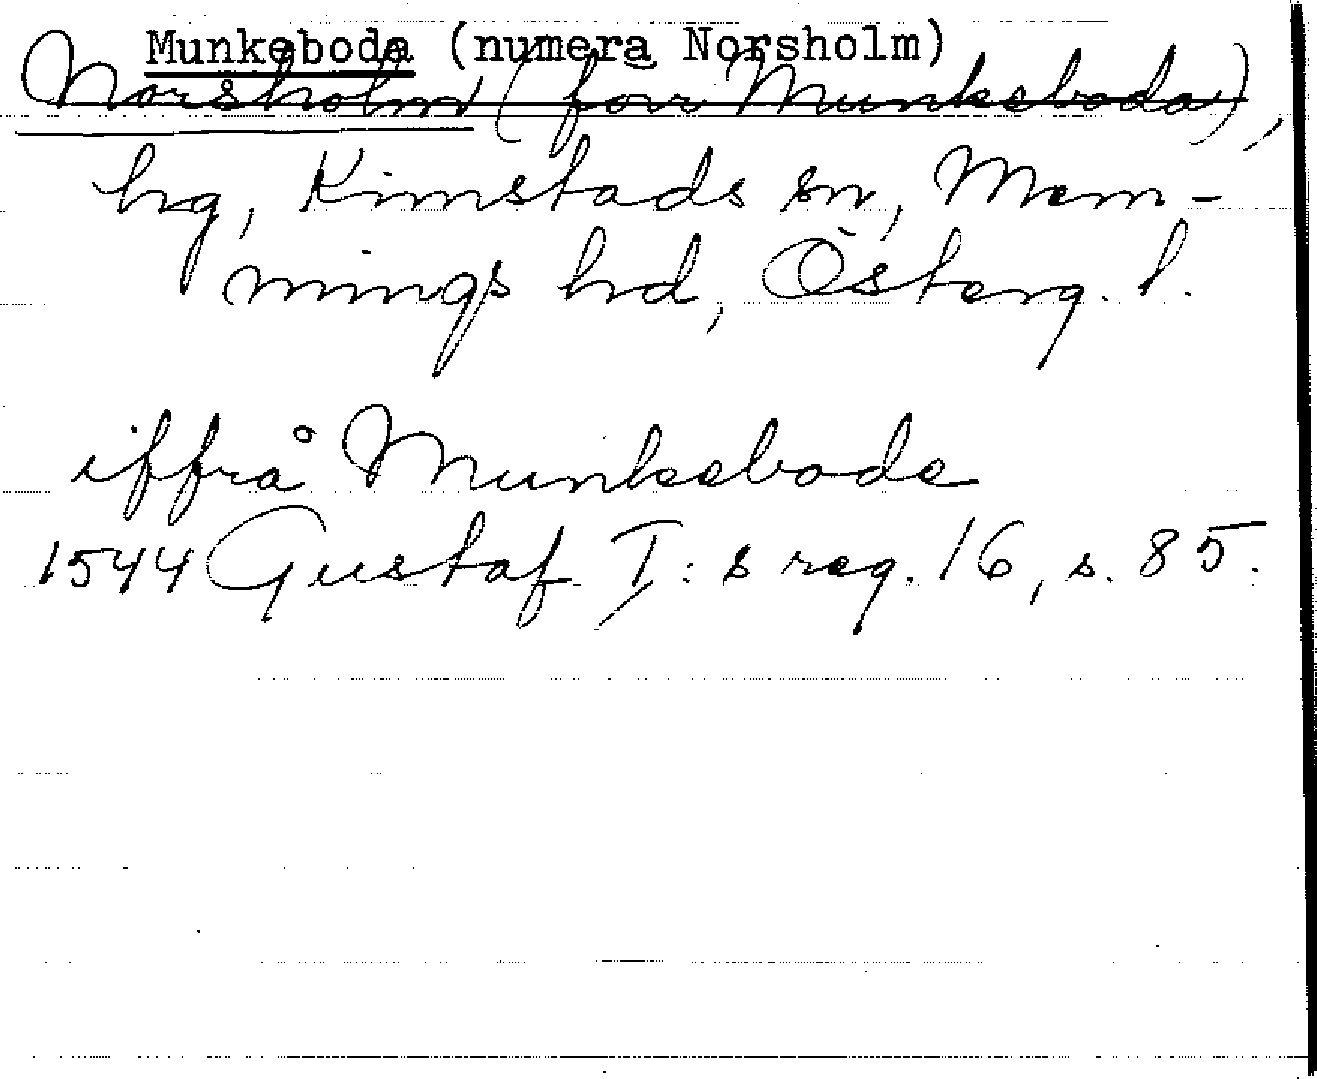 Munkeboda (numera Norsholm)
Norsholm (förr Munkeboda),
hg, Kimstads sn, Mem-
mings hd, Österg. l.
iffrå Munkebode
1544 Gustaf I:s reg. 16, s. 85.